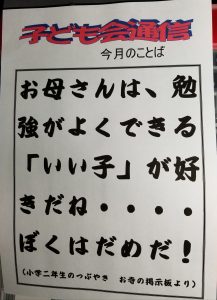 子ども会通信
今月のことば
お母さんは、勉
強がよくできる
「いい子」が好
きだね・・・・
ぼくはだめだ！
(小学二年生のつぶやき　お寺の掲示板より)